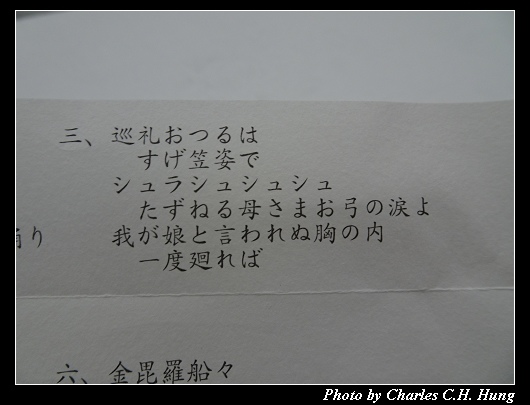 三、巡礼おつるは
すげ笠姿で
シュラシュシュシュ
たずねる母さまお弓の涙よ
我が娘と言われぬ胸の内
一度廻れば
り
六、金毘羅船々
Photo by Charles C.H. Hung